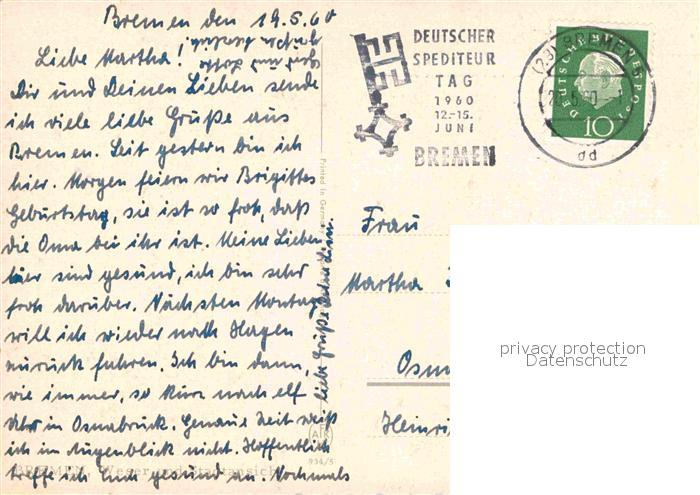 Bremen den 19.5.60
Liebe Martha!
Dir und Deinen Lieben sende
ich viele liebe Grüße aus
Bremen. Seit gestern bin ich
hier. Morgen feiern wir Brigittes
Geburtstag, sie ist so froh, daß
die Oma bei ihr ist. Meine Lieben
hier sind gesund, ich bin sehr
froh darüber. Nächsten Montag
will ich wieder nach Hagen
zurück fahren. Ich bin dann,
wie immer, so kurz nach elf
Uhr in Osnabrück. Genaue Zeit weiß
ich im Augenblick nicht. Hoffentlich
treffe ich Euch gesund an. Nochmals
liebe Grüße
BREMEN, Weser und Stadtansicht
934/5
Printed in Germany
DEUTSCHER
SPEDITEUR
TAG
1960
12.-15.
JUNI
BREMEN
(23) BREMEN
dd
DEUTSCHE BUNDESPOST
10
Frau
Martha
Osn
Heinri
privacy protection
Datenschutz